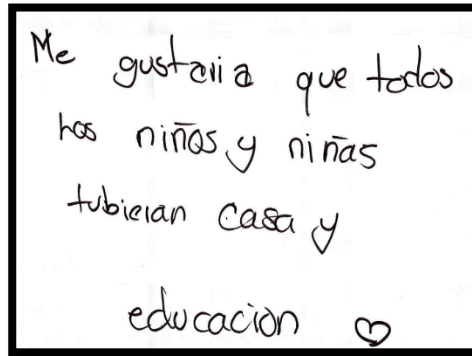 Me gustaria que todos
los niños y niñas
tubieran casa y
educacion ♡